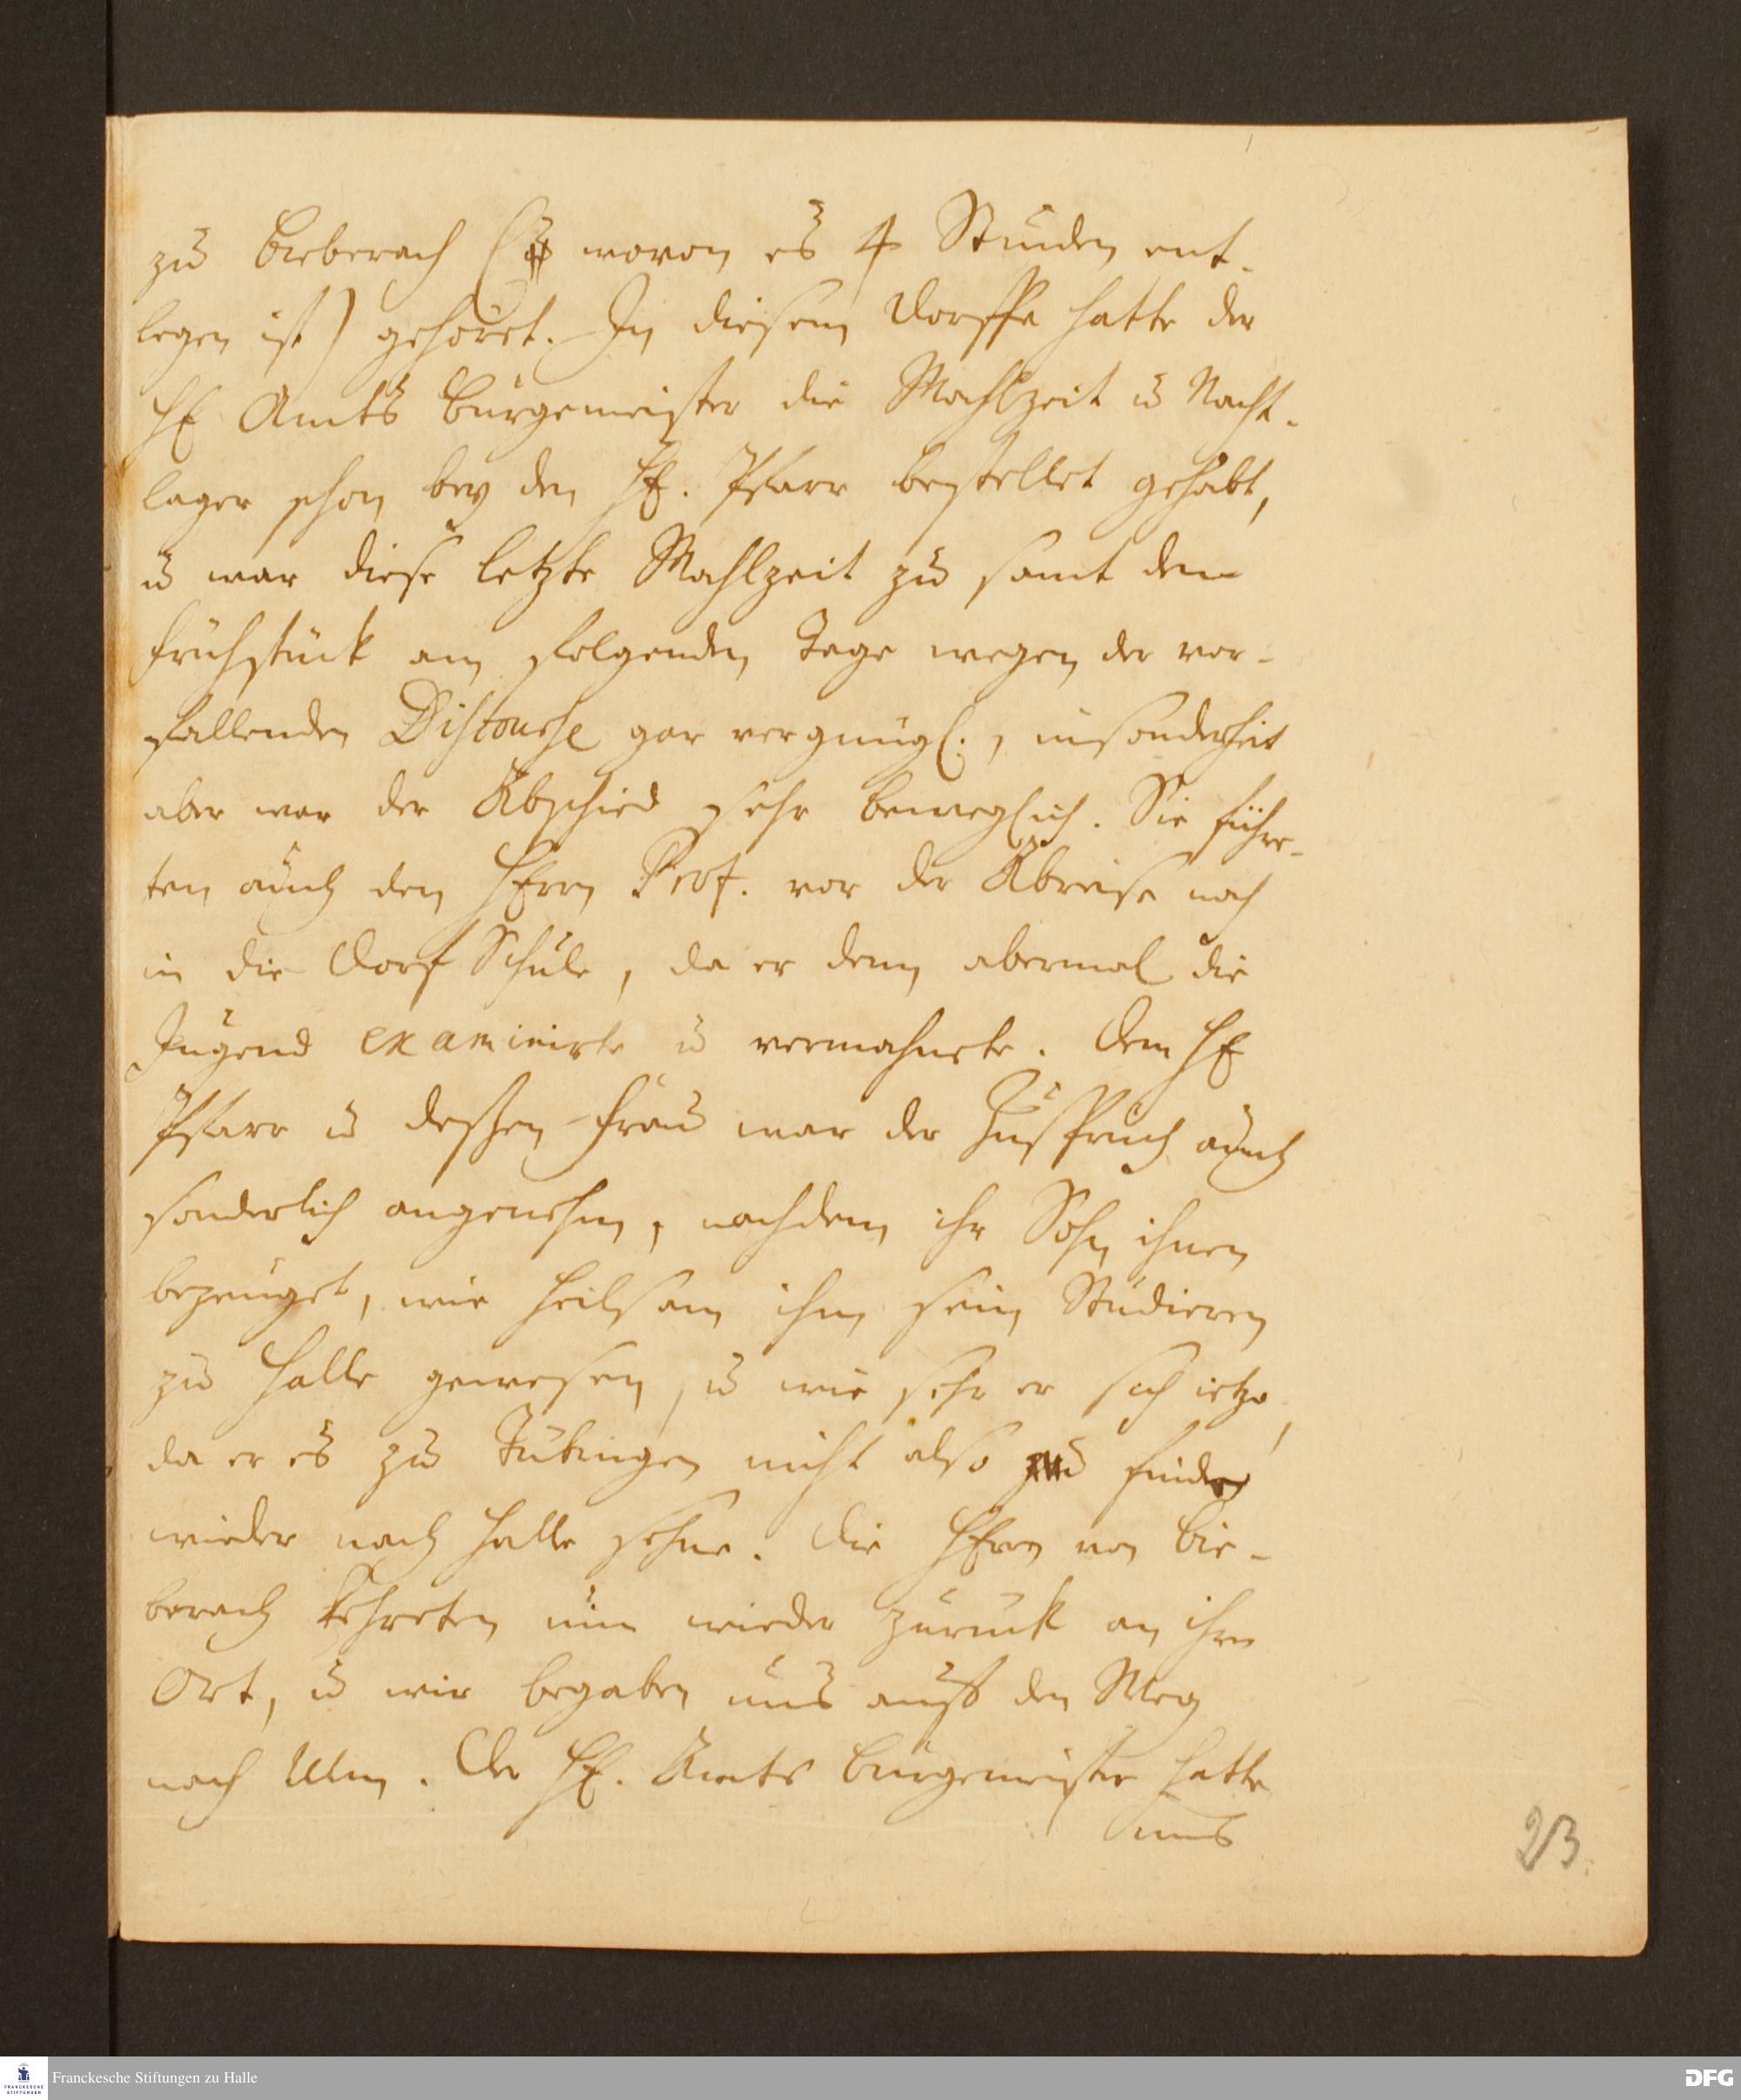 zu Bieberach (wovon es 4 Stunden ent-
legen ist) gehöret. In diesem Dorffe hatte der
H. Amts Burgemeister die Mahlzeit u Nacht-
lager schon bey den H. Pfarr bestellet gehabt,
u war diese letzte Mahlzeit zu samt dem
frühstück am folgenden Tage wegen der vor-
fallenden Discourse gar vergnügl., insonderheit
aber war der Abschied sehr beweglich. Sie führe-
ten auch den Herrn Prof. vor der Abreise noch
in die Dorf Schule, da er denn abermal die
Jugend examinirte u vermahnete. Dem H.
Pfarr u deßen Frau war der Zuspruch auch
sonderlich angenehm, nachdem ihr Sohn ihnen
bezeuget, wie heilsam ihm sein Studieren
zu Halle gewesen, u wie sehr er sich ietzo,
da er es zu Tübingen nicht also finde
wieder nach Halle sehne. Die Herrn von Bie-
berach kehreten nun wieder zurück an ihren
Ort, u wir begaben uns auff den Weg
nach Ulm. Der H. Amts Burgemeister hatte
uns
23.
Franckesche Stiftungen zu Halle
DFG